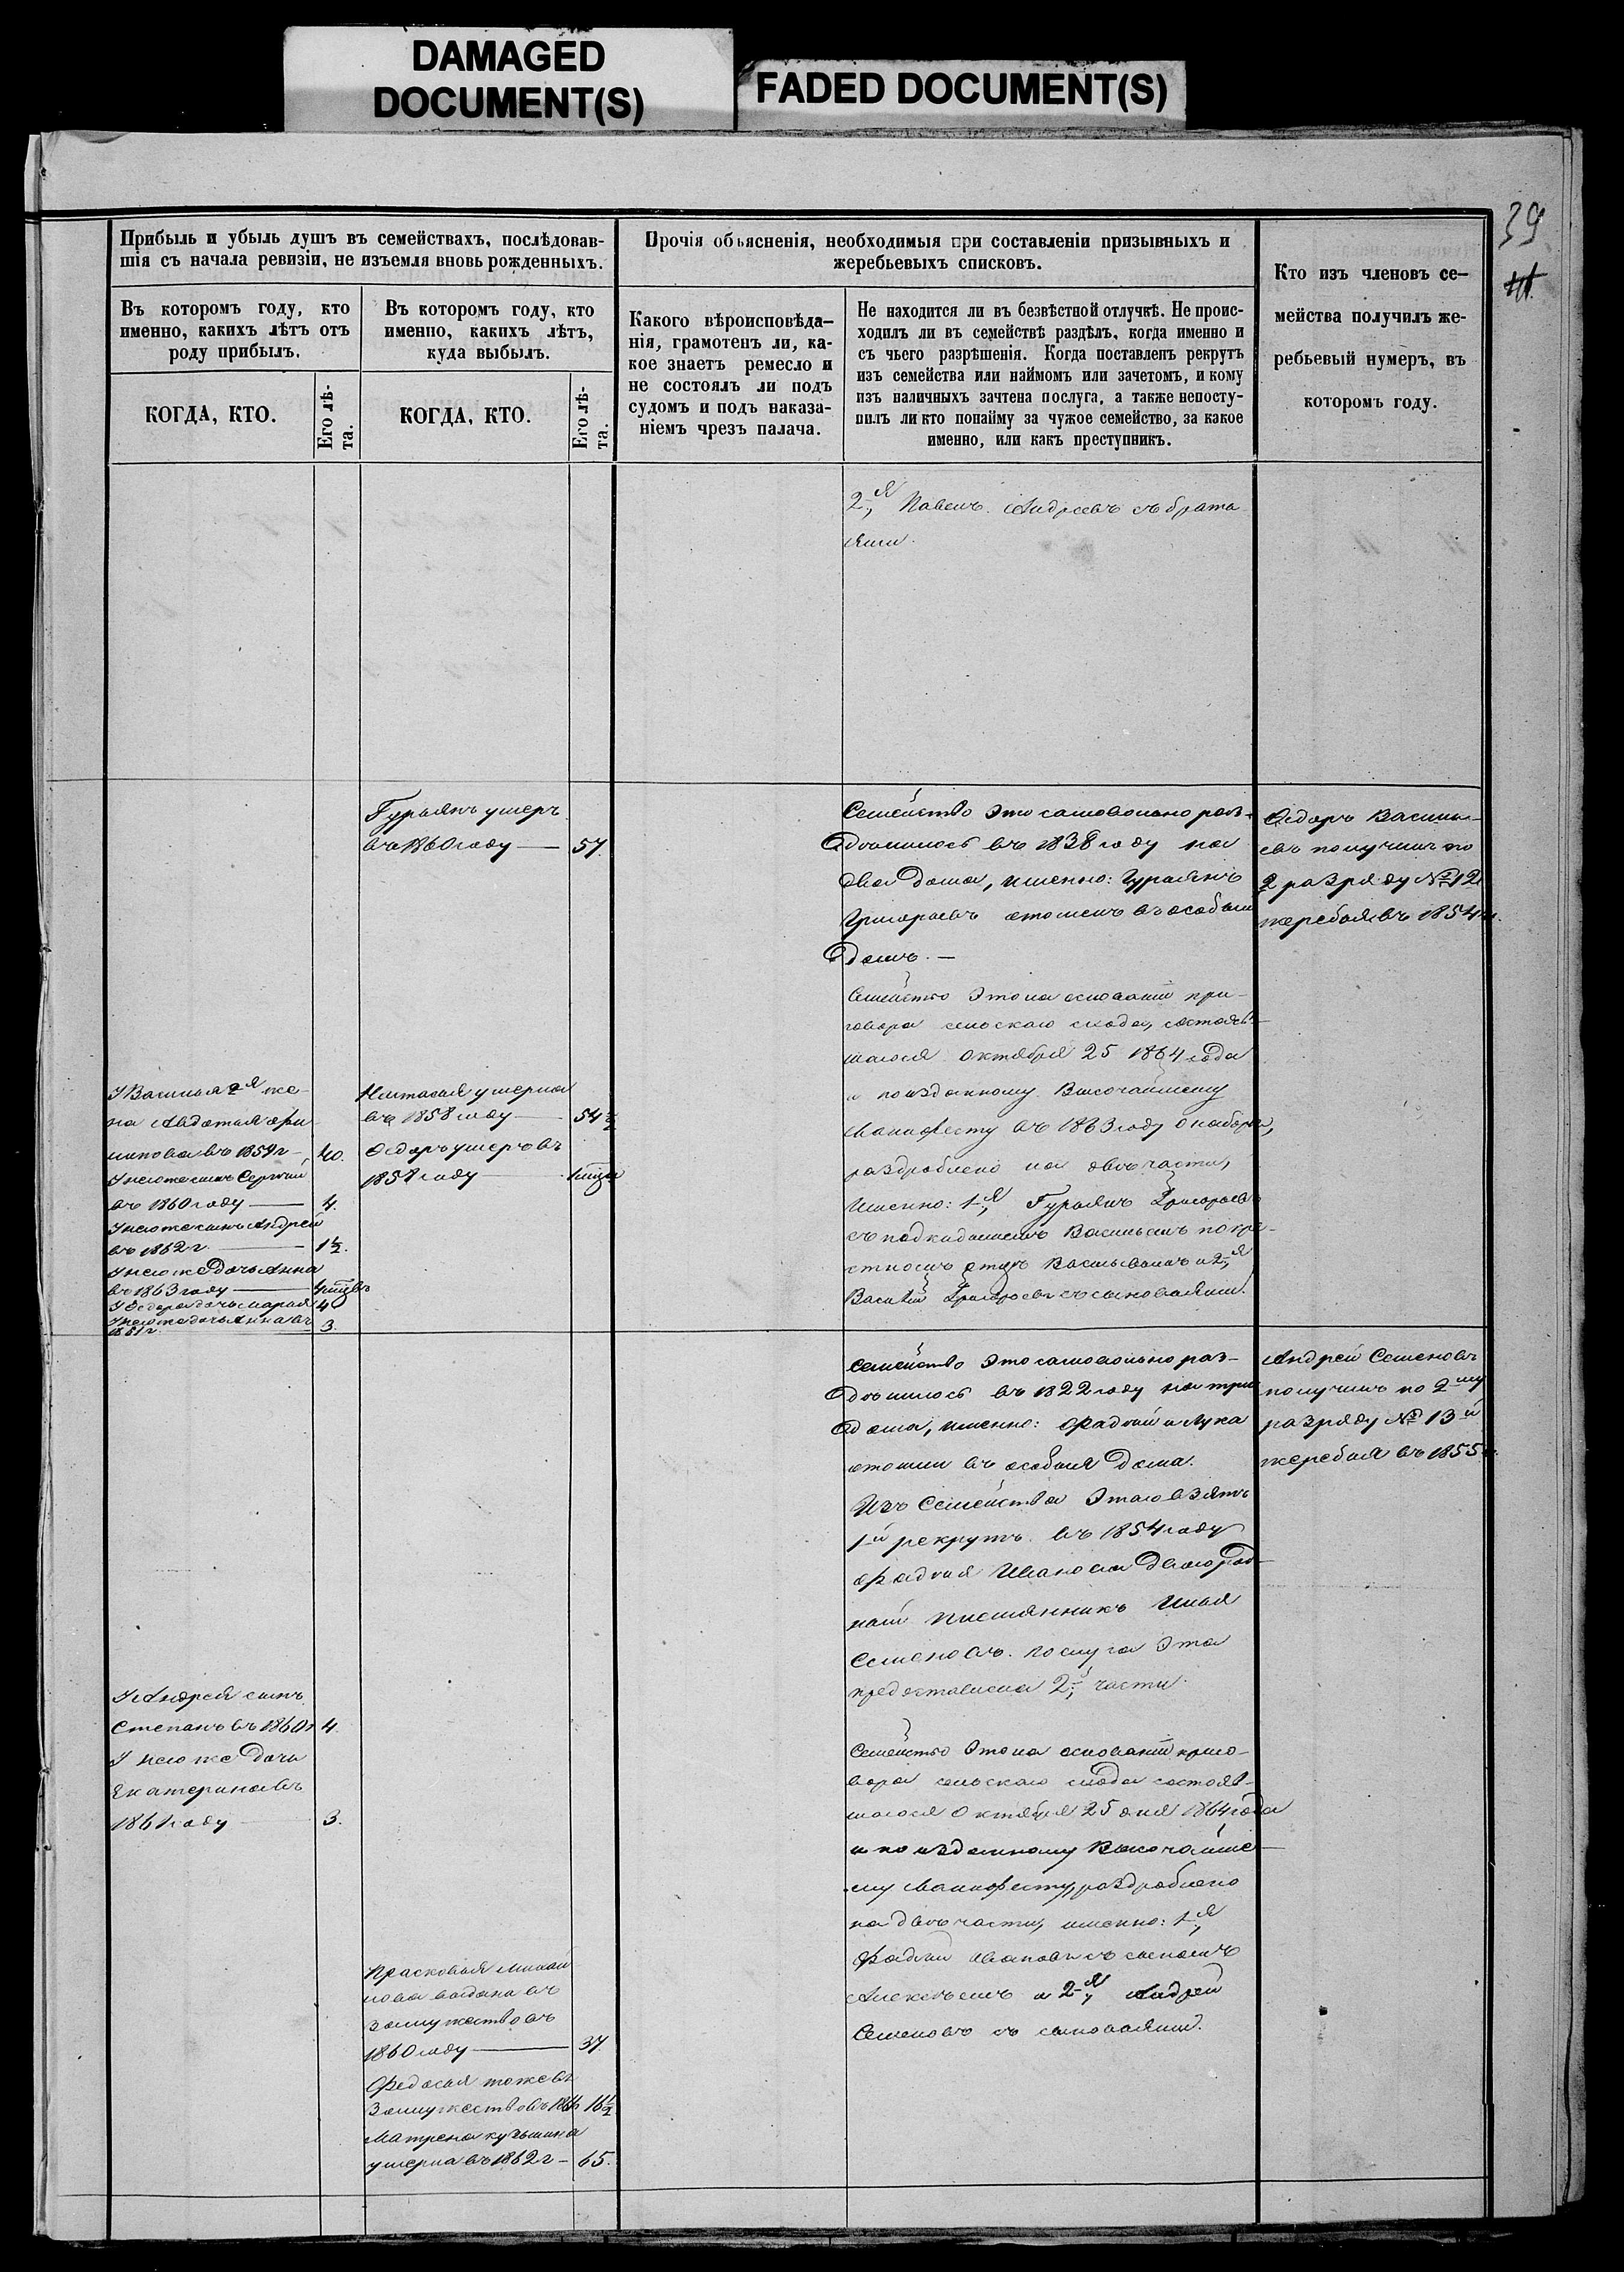 DAMAGED
DOCUMENT(S)
FADED DOCUMENT(S)
39
Прибыль и убыль душъ въ семействахъ, послѣдовав-
шія съ начала ревизіи, не изъемля вновь рожденныхъ.
Въ которомъ году, кто
именно, какихъ лѣтъ отъ
роду прибылъ.
КОГДА, КТО.
Его лѣ-
та.
Въ которомъ году, кто
именно, какихъ лѣтъ,
куда выбылъ.
КОГДА, КТО.
Его лѣ-
та.
Прочія объясненія, необходимыя при составленіи призывныхъ и
жеребьевыхъ списковъ.
Какого вѣроисповѣда-
нія, грамотенъ ли, ка-
кое знаетъ ремесло и
не состоялъ ли подъ
судомъ и подъ наказа-
ніемъ чрезъ палача.
Не находится ли въ безвѣстной отлучкѣ. Не проис-
ходилъ ли въ семействѣ раздѣлъ, когда именно и
съ чьего разрѣшенія. Когда поставленъ рекрутъ
изъ семейства или наймомъ или зачетомъ, и кому
изъ наличныхъ зачтена послуга, а также непосту-
пилъ ли кто понайму за чужое семейство, за какое
именно, или какъ преступникъ.
Кто изъ членовъ се-
мейства получилъ же-
ребьевый нумеръ, въ
которомъ году.
2я, Павелъ Андреевъ съ брать
ями.
Гурьянъ умеръ
въ 1860 году — 57.
Семейство это самовольно раз-
дѣлилось въ 1838 году на
два дома, именно: Гурьянъ
Григорьевъ отошелъ въ особый
домъ. —
Ѳедоръ Василь-
евъ получилъ по
2 разряду № 12
жеребья въ 1854 г.
Семейство это на основаніи при-
говора сельскаго схода, состояв-
шагося октября 25 1864 года
и по изданному Высочайшему
Манифесту въ 1863 году о наборѣ,
раздроблено на двѣ части,
Именно: 1я, Гурьянъ Григорьевъ
съ подкидышемъ Васильемъ по кре-
стномъ отцѣ Васильевымъ и 2я,
Василій Григорьевъ съ сыновьями.
У Василья 2я же-
на Авдотья
въ 1859 г — 40.
У него же сынъ Сергѣй
въ 1860 году — 4.
У него же сынъ Андрей
въ 1862 г. — 1½.
У него же дочь Анна
въ 1863 году —
У Ѳедора дочь Марья 4
У него же дочь Анна въ
1861 г. 3.
Настасья умерла
въ 1858 году — 54½
Ѳедоръ умеръ въ
1858 году —
Семейство это самовольно раз-
дѣлилось въ 1822 году на три
дома, именно: Фадѣй и Лука
отошли въ особыя дома.
Андрей Семеновъ
получилъ по 2му
разряду № 13й
жеребья въ 1855 г.
Изъ Семейства этаго взятъ
1й рекрутъ въ 1854 году
Фадѣя Иванова двоюрод-
ный племянникъ Илья
Семеновъ. послуга эта
предоставлена 2й, части.
Семейство это на основаніи приго-
вора сельскаго схода состояв-
шагося Октября 25 дня 1864 года
и по изданному Высочайше-
му Манифесту, раздроблено
на двѣ части, именно: 1я,
Фадѣй Ивановъ съ сыномъ
Алексѣемъ и 2я, Андрей
Семеновъ съ сыновьями.
У Андрея сынъ
Степанъ въ 1860 г 4.
У него же дочь
Екатерина въ
1861 году — 3.
Прасковья Михай
лова выдана въ
замужество въ
1860 году — 37.
Федосья тоже въ
замужество въ 16½
Матрена Кузьмина
умерла въ 1862 г — 65.